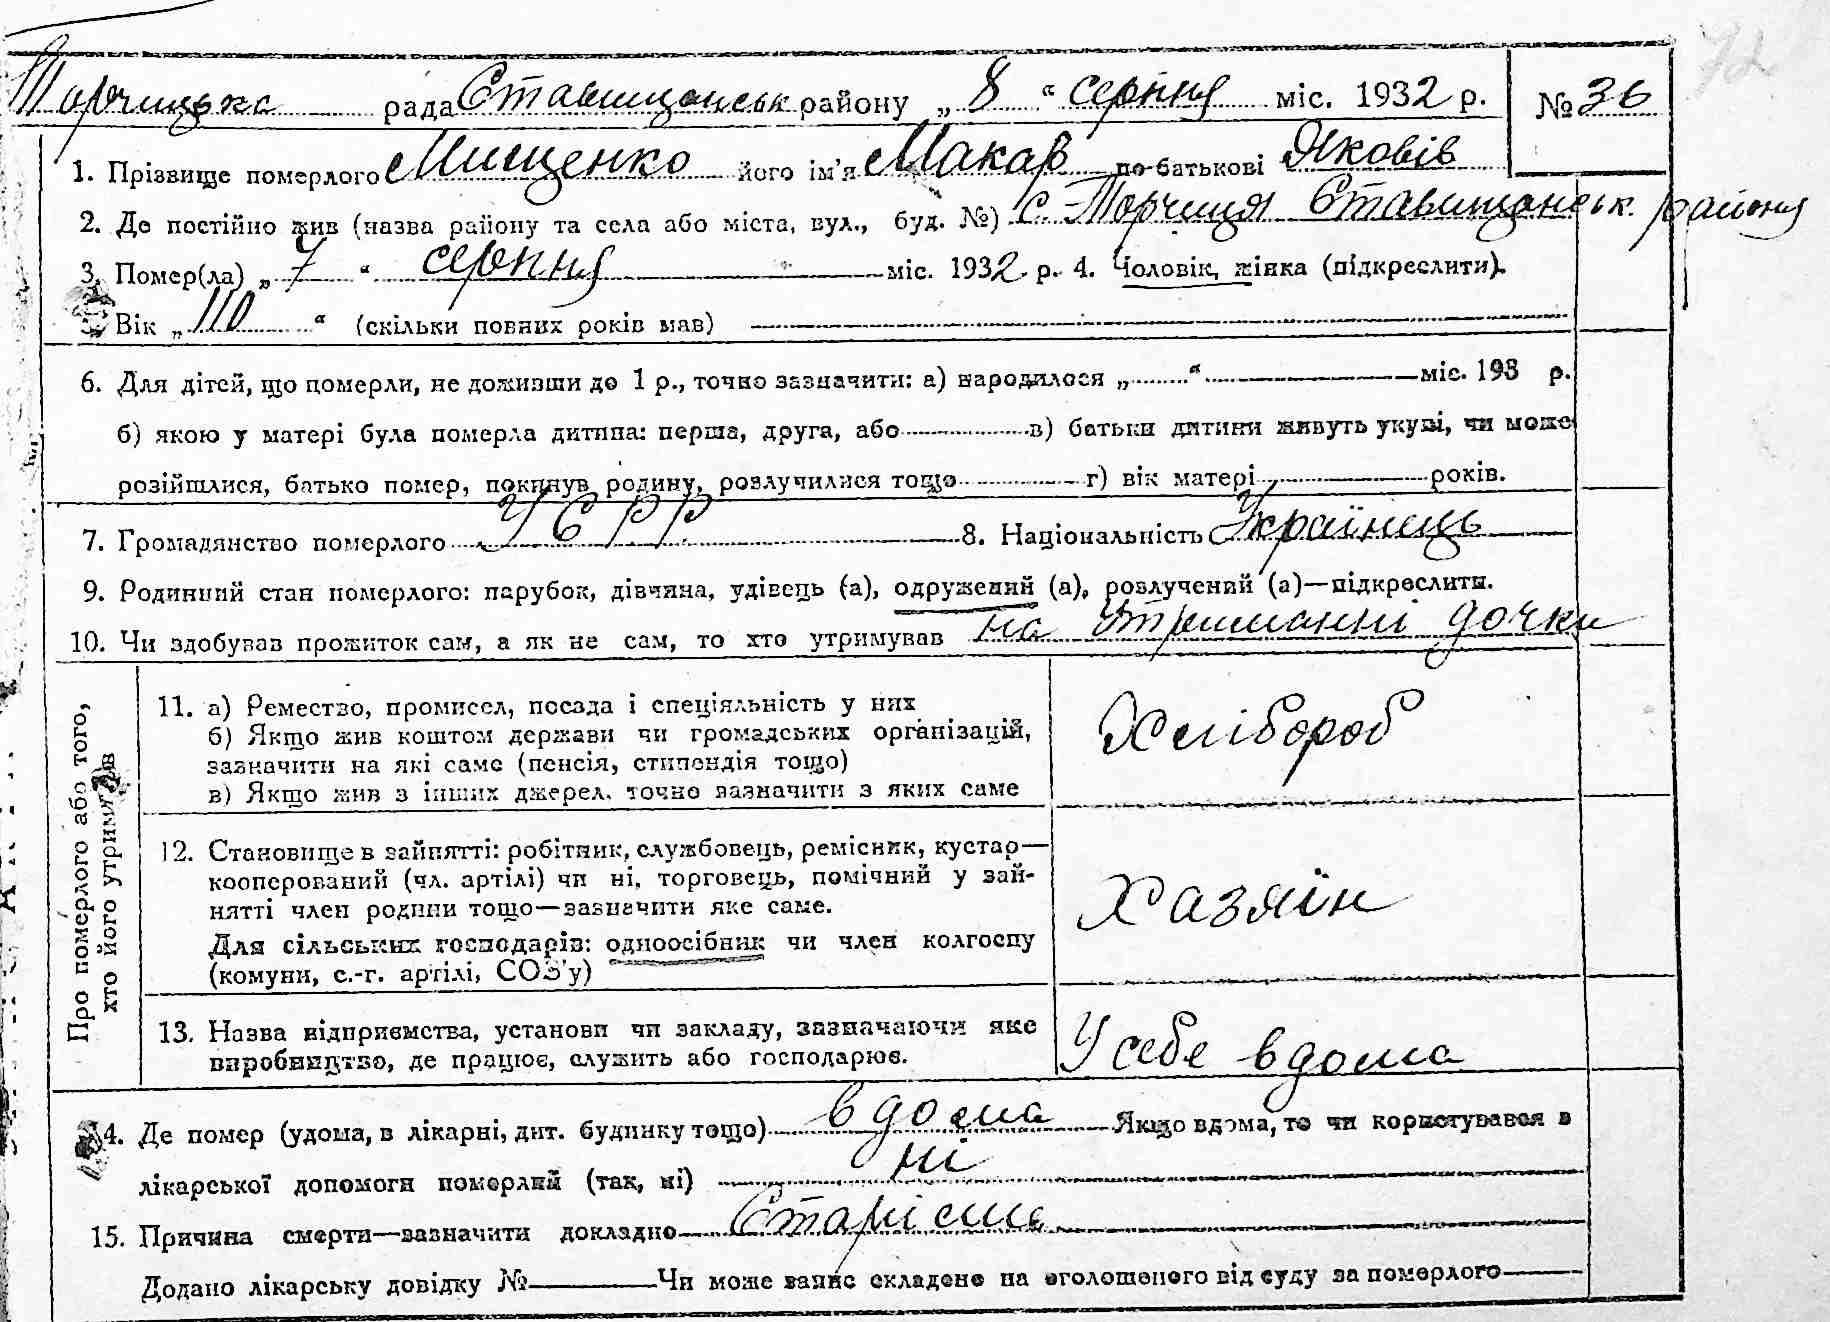 72
Торчицька рада Ставищанськ району „ 8 “ серпня міс. 1932 р. № 36
1. Прізвище померлого Мищенко його ім'я Макар по батькові Яковів
2. Де постійно жив (назва району та села або міста, вул., буд. №) С. Торчиця Ставищанськ. района
3. Помер(ла) „ 7 “ серпня міс. 1932 р. 4. Чоловік, жінка (підкреслити).
5. Вік „ 110 “ (скільки повних років мав)
6. Для дітей, що померли, не доживши до 1 р., точно зазначити: а) народилося „ “ міс. 193 р.
б) якою у матері була померла дитина: перша, друга, або в) батьки дитини живуть укупі, чи може
розійшлися, батько помер, покинув родину, розлучилися тощо г) вік матері років.
7. Громадянство померлого УСРР 8. Національність Українець
9. Родинний стан померлого: парубок, дівчина, удівець (а), одружений (а), розлучений (а)—підкреслити.
10. Чи здобував прожиток сам, а як не сам, то хто утримував на утриманні дочки
Про померлого або того,
хто його утримував
11. а) Ремество, промисел, посада і спеціяльність у них
б) Якщо жив коштом держави чи громадських організацій,
зазначити на які саме (пенсія, стипендія тощо)
в) Якщо жив з інших джерел, точно зазначити з яких саме
Хлібороб
12. Становище в зайнятті: робітник, службовець, ремісник, кустар—
кооперований (чл. артілі) чи ні, торговець, помічний у зай-
нятті член родини тощо—зазначити яке саме.
Для сільських господарів: одноосібник чи член колгоспу
(комуни, с.-г. артілі, СОЗ'у)
Хазяїн
13. Назва відприємства, установи чи закладу, зазначаючи яке
виробництво, де працює, служить або господарює.
У себе вдома
14. Де помер (удома, в лікарні, дит. будинку тощо) вдома Якщо вдома, то чи користувався з
лікарської допомоги померлий (так, ні) ні
15. Причина смерти—зазначити докладно
Додано лікарську довідку № Чи може запис складено на оголошеного від суду за померлого